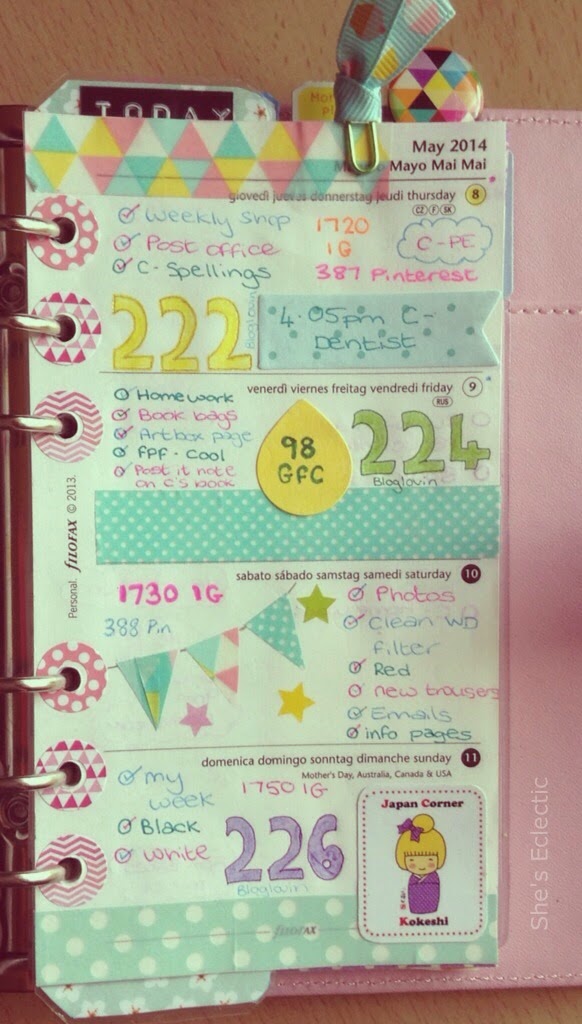 TODAY
May 2014
Mayo Mai Mai
giovedì jueves donnerstag jeudi thursday 8
CZ F SK
Weekly shop
1720
IG
C-PE
Post office
C-Spellings
387 Pinterest
222
Bloglovin
4.05pm C-
Dentist
venerdì viernes freitag vendredi friday 9
RUS
Homework
Book bags
Artbox page
FPF-Cool
Post it note
on C's book
98
GFC
224
Bloglovin
Personal. FILOFAX © 2013.
sabato sábado samstag samedi saturday 10
1730 IG
388 Pin
Photos
Clean WD
filter
Red
new trousers
Emails
info pages
domenica domingo sonntag dimanche sunday 11
Mother's Day, Australia, Canada & USA
my
week
Black
White
1750 IG
226
Bloglovin
Japan Corner
Kokeshi
FILOFAX
She's Eclectic